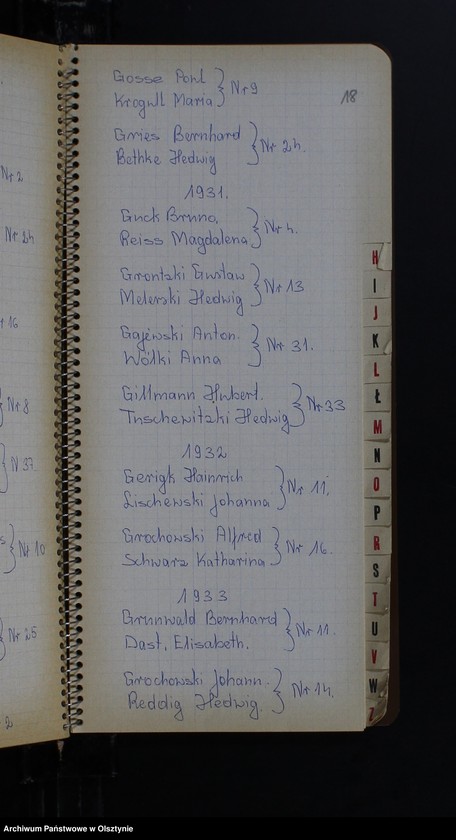 Gosse Paul
Krogull Maria } Nr 9
18
Gries Bernhard
Bethke Hedwig } Nr 24.
1931.
Guck Bruno,
Reiss Magdalena } Nr 4.
Grontzki Gustaw
Melerski Hedwig } Nr 13
Gajewski Anton.
Wólki Anna } Nr 31.
Gillmann Hubert.
Tuschewitzki Hedwig } Nr 33
1932
Gerigk Hainrich
Lischewski Johanna } Nr 11.
Grochowski Alfred
Schwarz Katharina } Nr 16.
1933
Grunwald Bernhard
Dast, Elisabeth. } Nr 11.
Grochowski Johann.
Reddig Hedwig. } Nr 14.
Nr 2
Nr 24
16
} Nr 8
} N 37.
} Nr 10
} Nr 25
2
H
I
J
K
L
Ł
M
N
O
P
R
S
T
U
V
W
Z
Archiwum Państwowe w Olsztynie